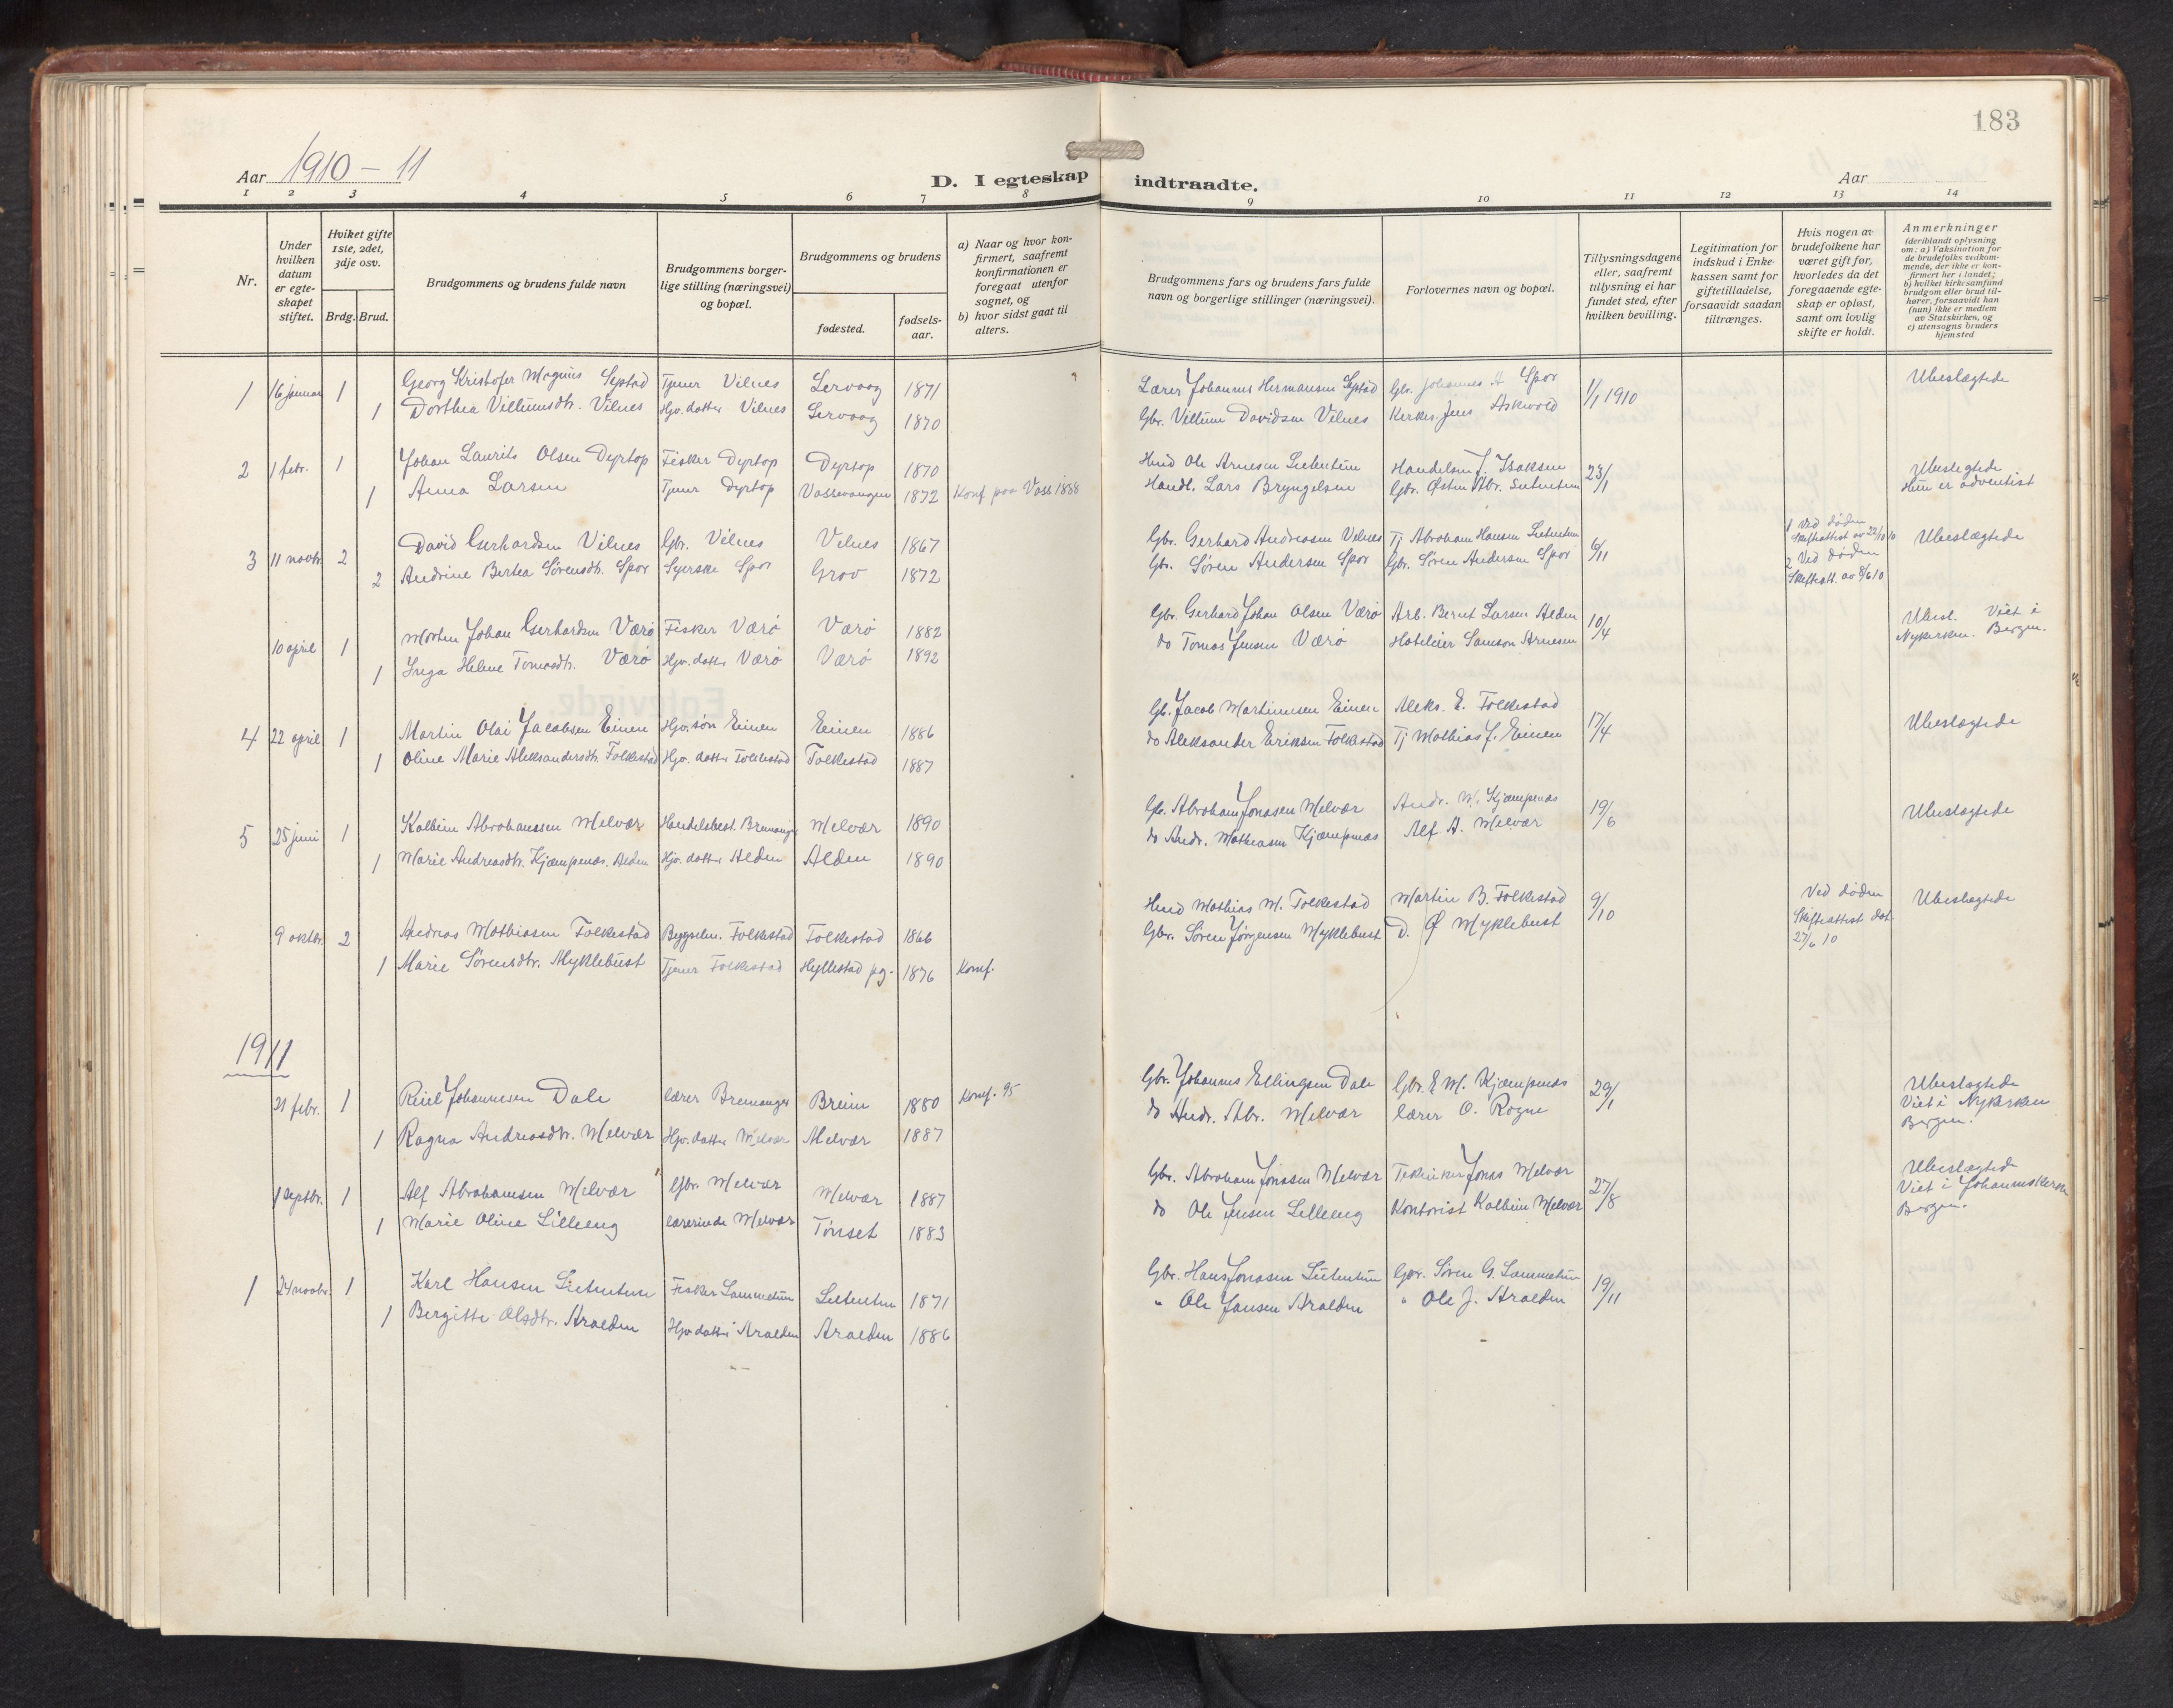 183
Aar 1910 – 11
D. I egteskap indtraadte.
Aar
1 2 3 4 5 6 7 8 9 10 11 12 13 14
Nr.
Under hvilken datum er egteskapet stiftet.
Hvilket gifte 1ste, 2det, 3dje osv.
Brdg. Brud.
Brudgommens og brudens fulde navn
Brudgommens borgerlige stilling (næringsvei) og bopæl.
Brudgommens og brudens
fødested.
fødselsaar.
a) Naar og hvor konfirmert, saafremt konfirmationen er foregaat utenfor sognet, og
b) hvor sidst gaat til alters.
Brudgommens fars og brudens fars fulde navn og borgerlige stillinger (næringsvei).
Forlovernes navn og bopæl.
Tillysningsdagene eller, saafremt tillysning ei har fundet sted, efter hvilken bevilling.
Legitimation for indskud i Enkekassen samt for giftetilladelse, forsaavidt saadan tiltrænges.
Hvis nogen av brudefolkene har været gift før, hvorledes da det foregaaende egteskap er opløst, samt om lovlig skifte er holdt.
Anmerkninger
(deriblandt oplysning om: a) Vaksination for de brudefolks vedkommende, der ikke er konfirmert her i landet; b) hvilket kirkesamfund brudgom eller brud tilhører, forsaavidt han (hun) ikke er medlem av Statskirken, og c) utensogns bruders hjemsted
1 16 januar 1 Georg Kristofer Magnus Systad Tjener Vilnes Lervaag 1871 Lærer Johannes Hermansen Systad Gbr. Johannes A Spor 1/1 1910 Ubeslægtede
1 Dorthea Villumsdtr. Vilnes Hjv. datter Vilnes Lervaag 1870 Gbr. Villum Davidsen Vilnes Kirkes. Jens Askvold
2 1 febr. 1 Johan Laurits Olsen Dyrtop Fisker Dyrtop Dyrtop 1870 Hmd Ole Arnesen Lutentun Handelsm J. Isaksen 23/1 Ubeslegtede
1 Anna Larsen Tjener Dyrtop Vossevangen 1872 Konf. paa Voss 1888 Handl. Lars Bryngelsen Gbr. Østen Abr. Lutentun Hun er adventist
3 11 novbr. 2 David Gerhardsen Vilnes Gbr. Vilnes Vilnes 1867 Gbr. Gerhard Andreassen Vilnes Tj Abraham Hansen Lutentun 6/11 1 Ved døden Skifteattest av 22/10 10 Ubeslægtede
2 Andrine Bertea Sørensdtr. Spor Syerske Spor Grov 1872 Gbr. Søren Andersen Spor Gbr. Søren Andersen Spor 2 Ved døden Skifteatt. av 8/6 10
10 april 1 Morten Johan Gerhardsen Værø Fisker Værø Værø 1882 Gbr. Gerhard Johan Olsen Værø Arb. Bernt Larsen Alden 10/4 Ubesl. Viet i
1 Inga Heline Tomasdtr. Værø Hjv. datter Værø Værø 1892 do Tomas Jensen Værø Hotelier Samson Arnesen Nykirken. Bergen.
4 22 april 1 Martin Olai Jacobsen Einen Hjv. søn Einen Einen 1886 Gb. Jacob Martinusen Einen Aleks. E. Folkestad 17/4 Ubeslægtede
1 Oline Marie Aleksandersdtr. Folkestad Hjv. datter Folkestad Folkestad 1887 do Aleksander Eriksen Folkestad Tj Mathias J. Einen
5 25 juni 1 Kolbein Abrahamsen Melvær Handelsbest. Bremanger Melvær 1890 Gb. Abraham Jonassen Melvær Andr. M. Kjempenæs 19/6 Ubeslægtede
1 Marie Andreasdtr. Kjæmpenæs. Alden Hjv. datter Alden Alden 1890 do Andr. Mathiasen Kjæmpenæs Alf A. Melvær
9 oktbr. 2 Andreas Mathiasen Folkestad Folkestad Folkestad 1866 Hmd Mathias M. Folkestad Martin B. Folkestad 9/10 Ved døden Skifteattest dat. 27/6 10 Ubeslægtede
1 Marie Sørensdtr. Myklebust Tjener Folkestad Hyllestad pg. 1876 Konf. Gbr. Søren Jørgensen Myklebust D. Ø Myklebust
1911
21 febr. 1 Johannesen Dale Lærer Bremanger Breim 1880 Konf. 95 Gbr. Johannes Ellingsen Dale Gbr. E M. Kjæmpenæs 29/1 Ubeslægtede
1 Ragna Andreasdtr. Melvær Hjv. datter Melvær Melvær 1887 do Andr. Abr. Melvær lærer O. Rogne Viet i Nykirken Bergen.
1 septbr. 1 Alf Abrahamsen Melvær Gbr. Melvær Melvær 1887 Gbr. Abraham Jonassen Melvær Tekniker Jonas Melvær 27/8 Ubeslægtede
1 Marie Oline Lilleeng lærerinde Melvær Tønset 1883 do Ole Jensen Lilleeng Kontorist Kolbein Melvær Viet i Johanneskirken Bergen.
1 24 novbr. 1 Karl Hansen Lutentun Fisker Lammetun Lutentun 1871 Gbr. Hans Jonassen Lutentun Gbr. Søren G. Lammetun 19/11
1 Bergitte Olsdtr. Aralden Hjv datter Aralden Aralden 1886 " Ole Jansen Aralden " Ole J. Aralden